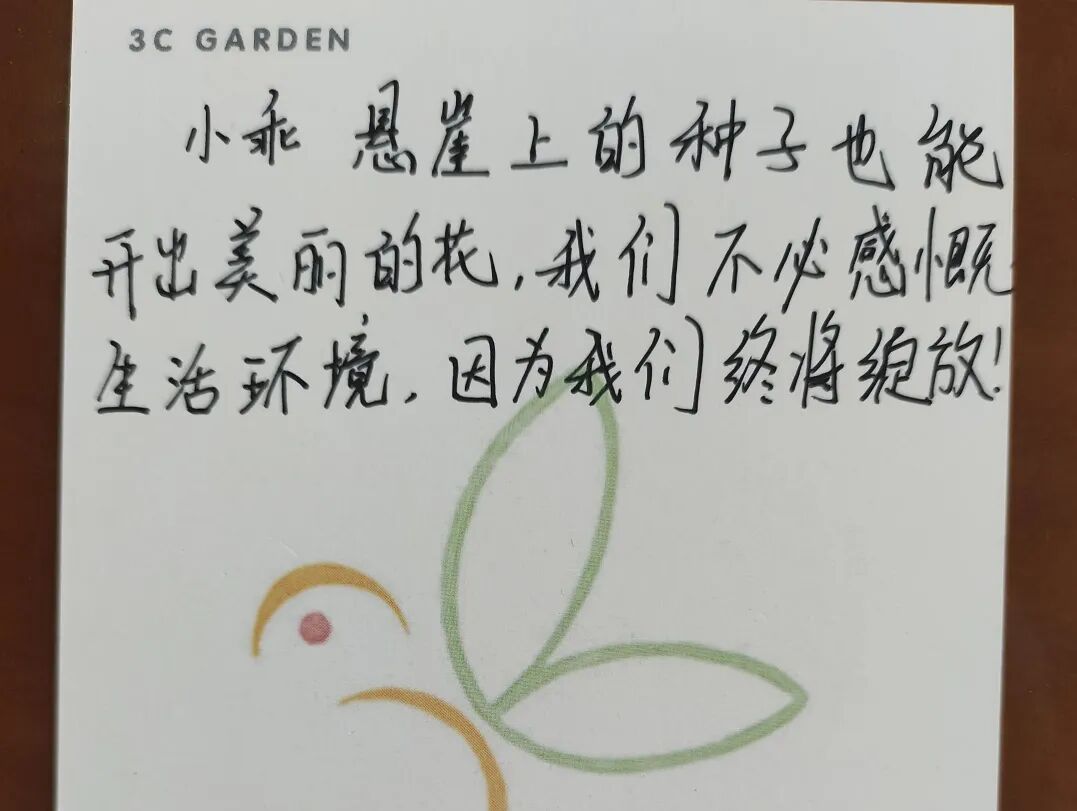 3C GARDEN
小乖 悬崖上的种子也能
开出美丽的花,我们不必感慨
生活环境,因为我们终将绽放!